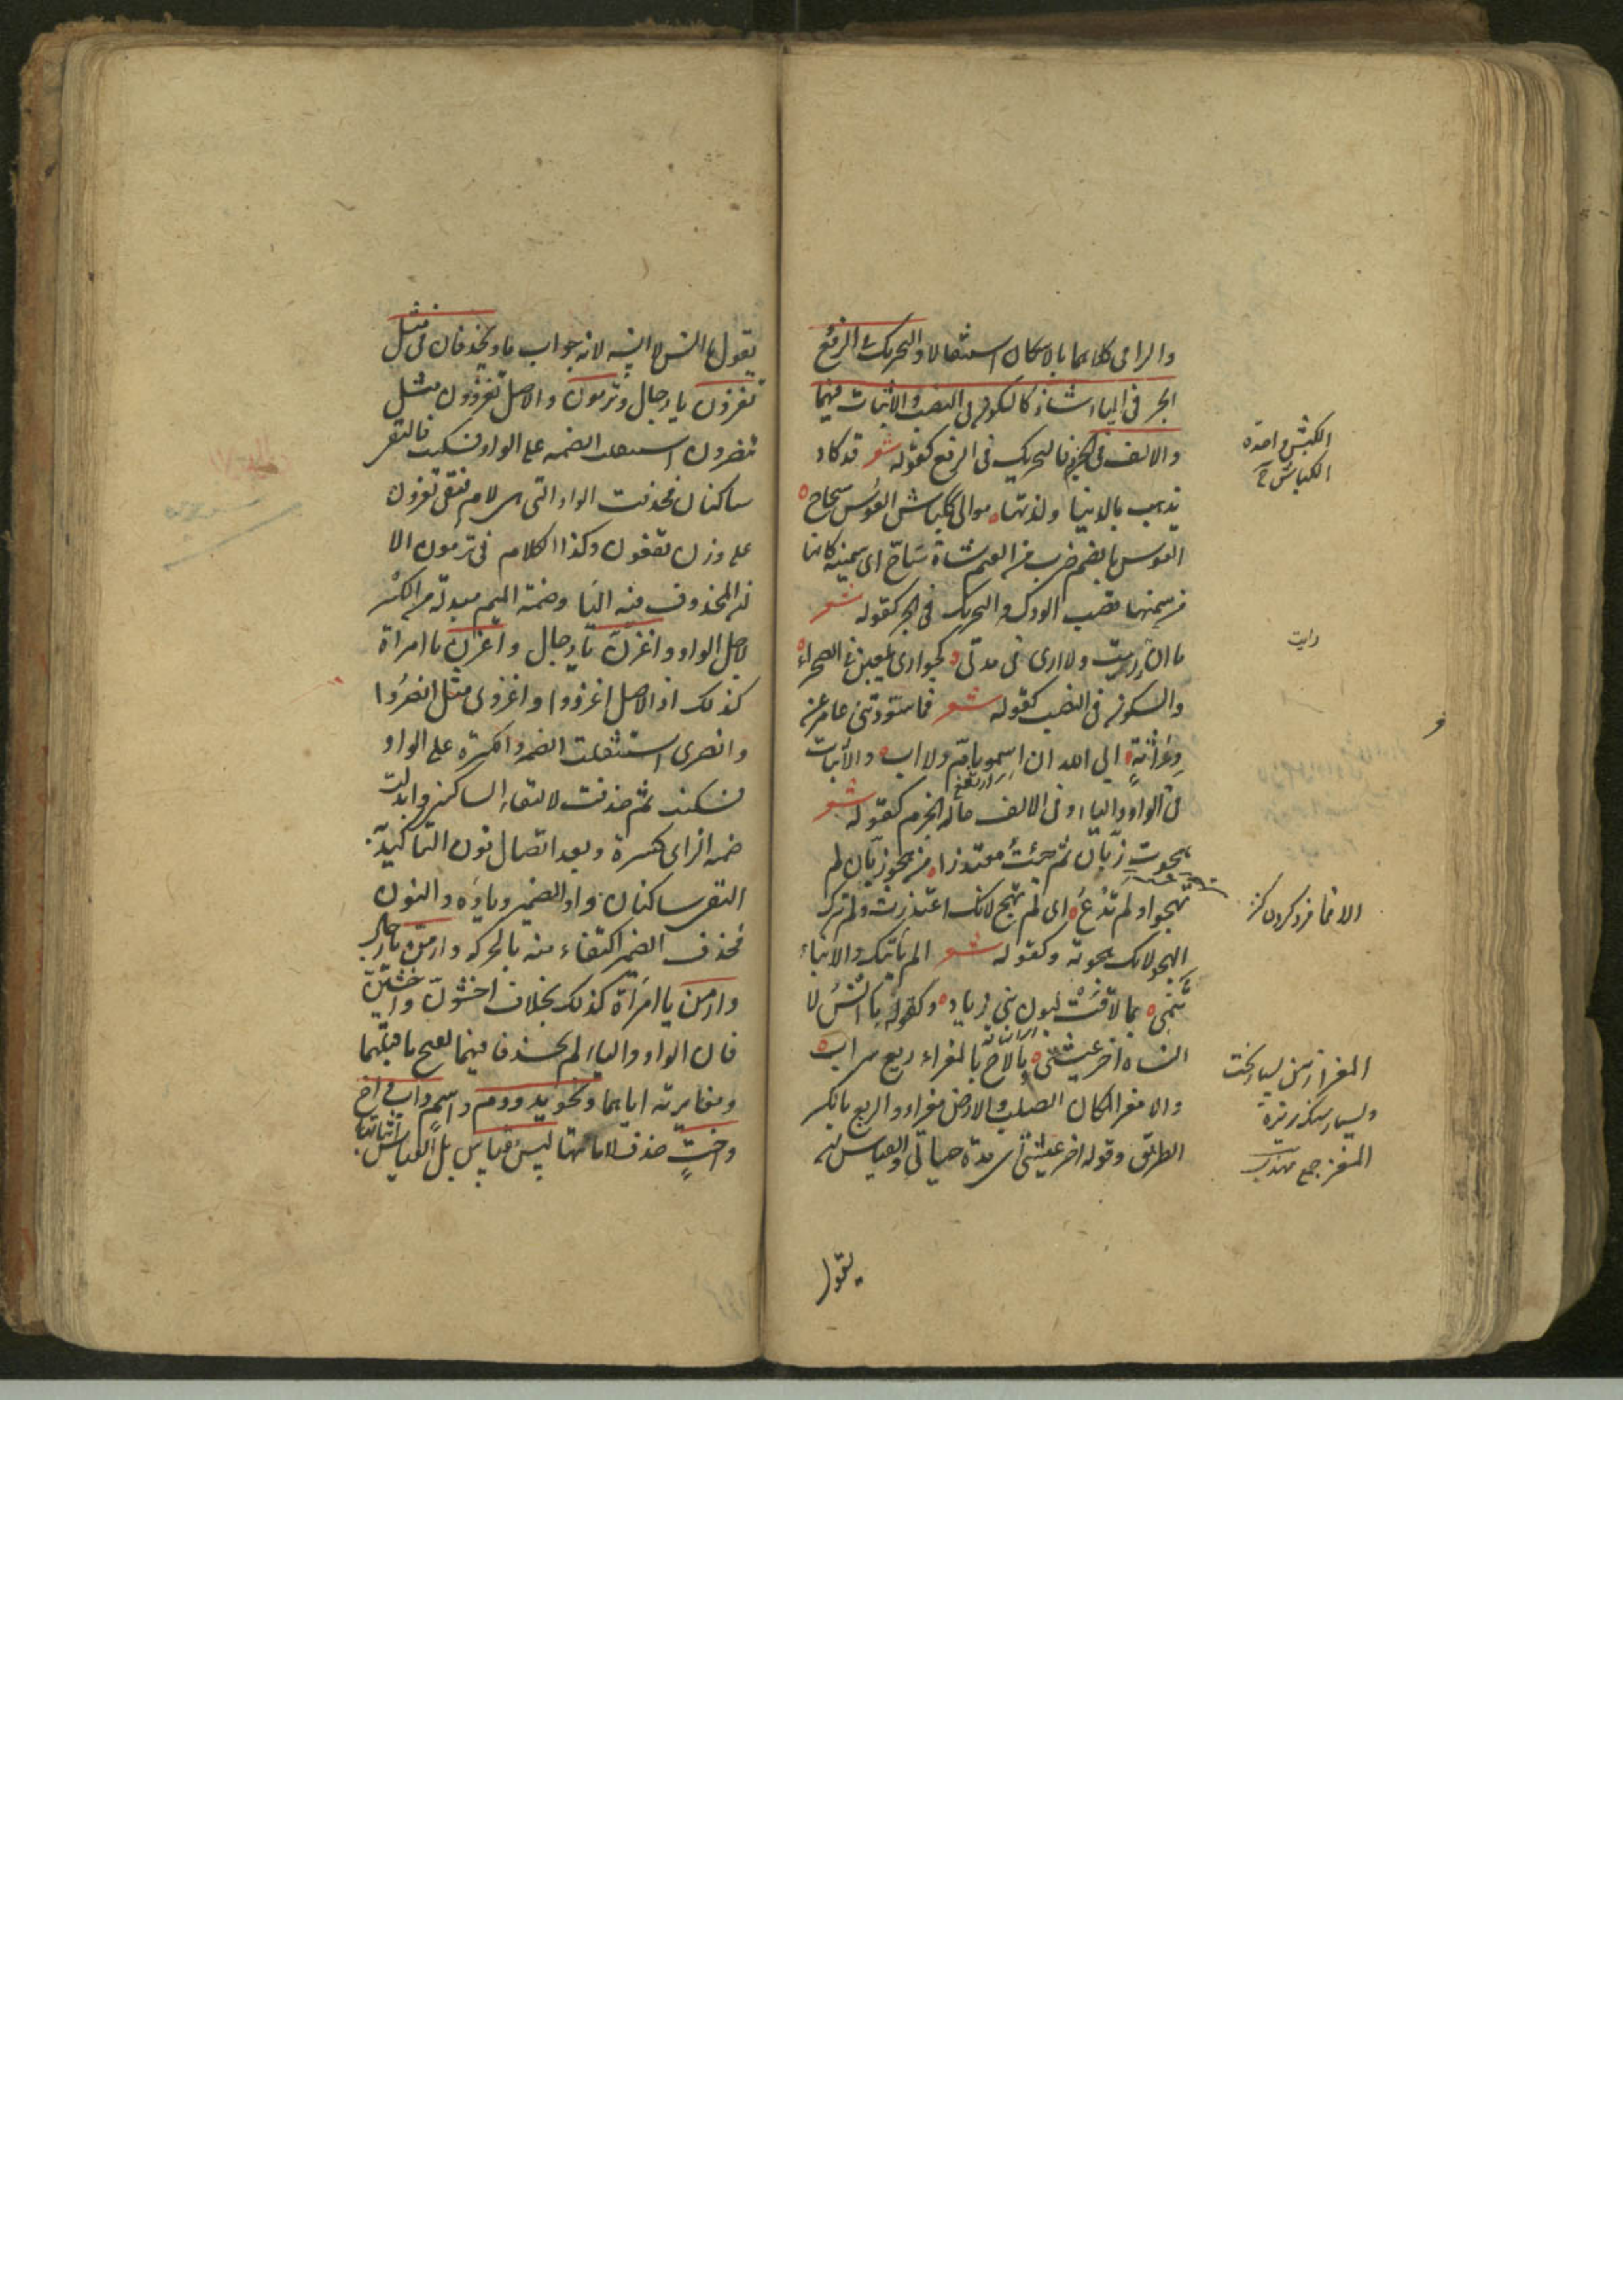 والرامی كلاهما بالاسكان استثقالا والتحریك فی الرفع
الجر فی الیاء شاذ كالسكون فی النصب والاثبات فیهما
والالف فی الجزم فالتحریك فی الرفع كقوله شعر قد كاد
یذهب بالدنیا ولذتها موالی ككباش العوس سحاح
العوس بالضم ضرب من الغنم شاة سحاح ای سمینة كانها
من سمنها تصب الودك والتحریك فی الجر كقوله شعر
ما ان رایت ولا اری فی مدتی كجواری یلعبن فی الصحراء
والسكون فی النصب كقوله شعر فما سودتنی عامر عن
وراثة ابی الله ان اسمو بام ولا اب والاثبات
فی الواو والیاء وفی الالف حالة الجزم كقوله شعر
هجوت زبان ثم جئت معتذرا من هجو زبان لم
تهجو ولم تدع ای لم تهج لانك اعتذرت ولم تترك
الهجو لانك هجوته وكقوله شعر الم یاتیك والانباء
تنمی بما لاقت لبون بنی زیاد وكقوله ما انس لا
انساه اخر عیشتی ما لاح بالمعزاء ریع سراب
والامعز المكان الصلب والارض معزاء والریع بالكسر
الطریق وقوله اخر عیشتی ای مدة حیاتی والقیاس ان
یقول
الكبش واحده
الكباش ج
رایت
المعز جمع
یقول ما انس لا انسه لانه جواب ما ویحذفان فی مثل
تغزون یا رجال وترمون والاصل تغزوون مثل
تنصرون استثقلت الضمة علی الواو فسكنت فالتقی
ساكنان فحذفت الواو التی هی لام فبقی تغزون
علی وزن تفعون وكذا الكلام فی ترمون الا
ان المحذوف فیه الیا وضمة المیم مبدلة من الكسر
لاجل الواو واغزن یا رجال واغزن یا امراة
كذلك اذ الاصل اغزووا واغزوی مثل انصروا
وانصری استثقلت الضمة والكسرة علی الواو
فسكنت ثم حذفت لالتقاء الساكنین وابدلت
ضمة الزای كسرة وبعد اتصال نون التاكید
التقی ساكنان واو الضمیر ویاؤه والنون
فحذف الضمیر اكتفاء منه بالحركة وارمن یا رجال
وارمن یا امراة كذلك بخلاف اخشون واخشین
فان الواو والیاء لم یحذفا فیهما لفتح ما قبلهما
ومغایرته ایاهما ونحو ید ودم واسم واب واخ
واخت حذف لاماتها لیس بقیاس بل القیاس اثباتها